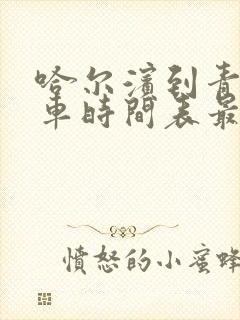 哈尔濱到青
車時間表最
憤怒的小蜜蜂